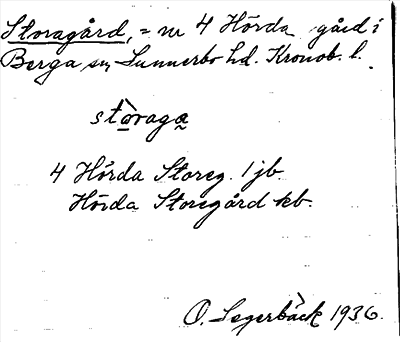 Storagård, = nr 4 Hörda gård i
Berga sn, Sunnerbo hd. Kronob. l.
stòraga
4 Hörda Storeg. 1 jb
Hörda Storegård kb.
O. Segerbäck 1936.